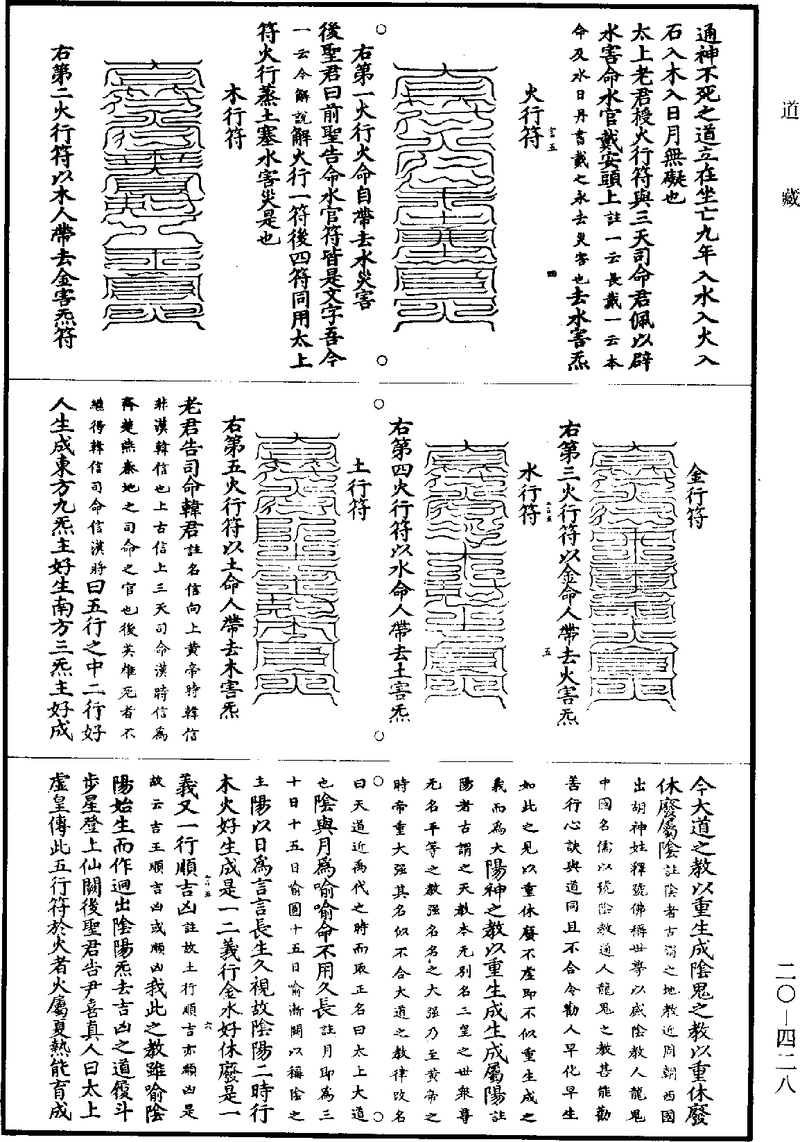 道藏
二〇—四二八
通神不死之道立在坐亡九年入水入火入
石入木入日月無礙也
太上老君授火行符與三天司命君佩以辟
水害命水官戴安頭上註一云長戴一云本
命及水日丹書戴之永去災害也去水害炁
火行符
右第一火行火命自帶去水災害
後聖君曰前聖告命水官符皆是文字吾今
一云今解說解火行一符後四符同用太上
符火行蒸土塞水害災是也
木行符
右第二火行符以木人帶去金害炁符
金行符
右第三火行符以金命人帶去火害炁
水行符
右第四火行符以水命人帶去土害炁
土行符
右第五火行符以土命人帶去木害炁
老君告司命韓君註名信向上黄帝時韓信
非漢韓信也上古信上三天司命漢時信爲
齊楚燕秦地之司命之官也後英雄死者不
繼得韓信司命信漢時曰五行之中二行好
人生成東方九炁主好生南方三炁主好成
今大道之教以重生成陰鬼之教以重休廢
休廢屬陰註陰者古濁之地教近周朝西國
出胡神姓釋號佛稱世尊以威陰教人龍鬼
中國名儒以號陰教通人龍鬼之教甚能勸
善行心訣與道同且不合令勸人早化早生
如此之見以重休廢不虛即不似重生成之
義而爲大陽神之教以重生成生成屬陽註
陽者古謂之天教本无别名三皇之世衆尊
无名平等之教强名名之大强乃至黄帝之
時帝重大强其名似不合大道之教律改名
曰天道近禹代之時而取正名曰太上大道
也陰與月爲喻喻命不用久長註月即爲三
十日十五日喻圓十五日喻漸闕以稱陰之
主陽以日爲言言長生久視故陰陽二時行
木火好生成是一二義行金水好休廢是一
義又一行順吉凶註故土行順吉亦順凶是
故云吉王順吉凶或順凶我此之教雖喻陰
陽始生而作迴出陰陽炁去吉凶之道履斗
步星登上仙關後聖君告尹喜真人曰太上
虛皇傳此五行符於火者火屬夏熱能育成